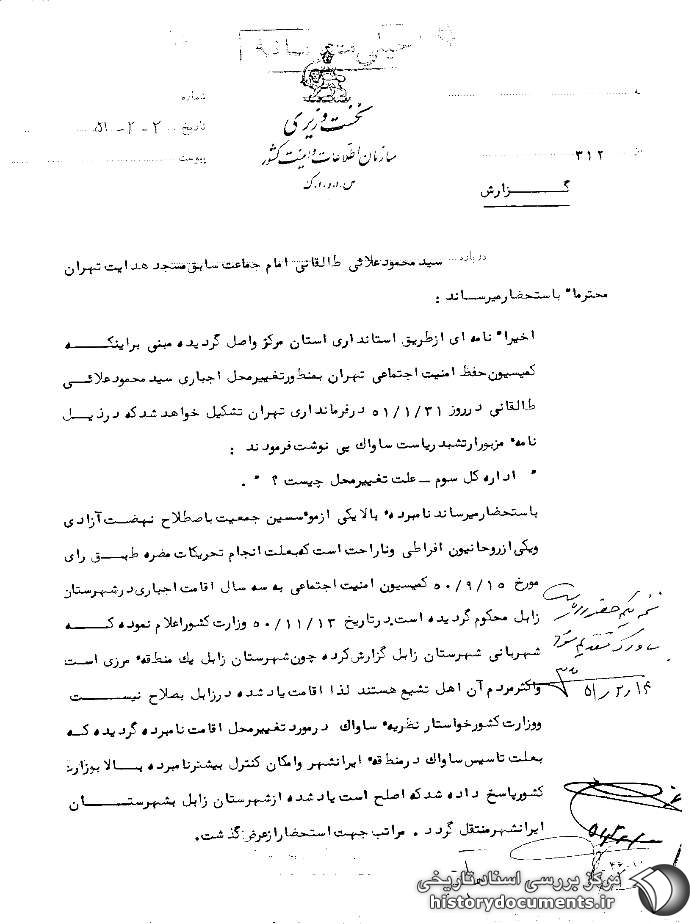 خیلی محرمانه
شماره
تاریخ ۲-۲-۵۱
پیوست
به
از ۳۱۲
نخست وزیری
سازمان اطلاعات و امنیت کشور
س.ا.و.ا.ک
گزارش
درباره سید محمود علائی طالقانی امام جماعت سابق مسجد هدایت تهران
محترما" باستحضار میرساند :
اخیرا" نامه ای از طریق استانداری استان مرکز واصل گردیده مبنی بر اینکه
کمیسیون حفظ امنیت اجتماعی تهران بمنظور تغییر محل اجباری سید محمود علائی
طالقانی در روز ۵۱/۱/۳۱ در فرمانداری تهران تشکیل خواهد شد که در ذیل
نامه مزبور ارتشبد ریاست ساواک پی نوشت فرمودند :
" اداره کل سوم ــ علت تغییر محل چیست ؟ " .
باستحضار میرساند نامبرده بالا یکی از موسسین جمعیت باصطلاح نهضت آزادی
ویکی از روحانیون افراطی وناراحت است که بعلت انجام تحریکات مضره طبق رای
مورخ ۵۰/۹/۱۵ کمیسیون امنیت اجتماعی به سه سال اقامت اجباری در شهرستان
زابل محکوم گردیده است. در تاریخ ۵۰/۱۱/۱۳ وزارت کشور اعلام نموده که
شهربانی شهرستان زابل گزارش کرده چون شهرستان زابل یک منطقه مرزی است
واکثر مردم آن اهل تشیع هستند لذا اقامت یاد شده در زابل بصلاح نیست
ووزارت کشور خواستار نظریه ساواک در مورد تغییر محل اقامت نامبرده گردیده که
بعلت تاسیس ساواک در منطقه ایرانشهر وامکان کنترل بیشتر نامبرده بالا بوزارت
کشور پاسخ داده شد که اصلح است یاد شده از شهرستان زابل بشهرستان
ایرانشهر منتقل گردد . مراتب جهت استحضار از عرض گذشت.
ساواک تقدیم شود
۵۱/۲/۱۴
مرکز بررسی اسناد تاریخی
historydocuments.ir